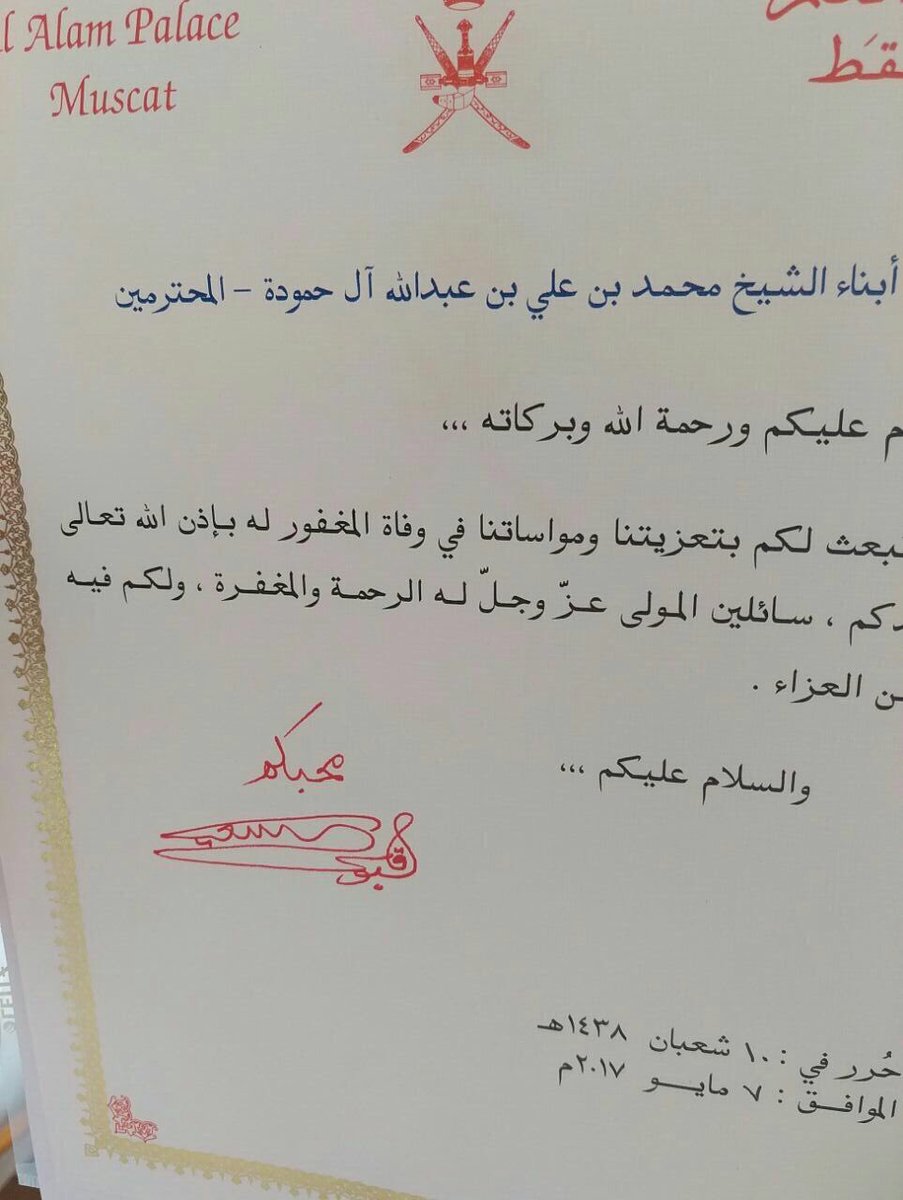 Al Alam Palace
Muscat
أبناء الشيخ محمد بن علي بن عبدالله آل حمودة - المحترمين
عليكم ورحمة الله وبركاته ,,,
نبعث لكم بتعزيتنا ومواساتنا في وفاة المغفور له بإذن الله تعالى
، سائلين المولى عزّ وجلّ له الرحمة والمغفرة ، ولكم فيه
العزاء .
والسلام عليكم ,,,
محبكم
قابوس سعيد
حُرر في : ١٠ شعبان ١٤٣٨هـ
الموافق : ٧ مايو ٢٠١٧م